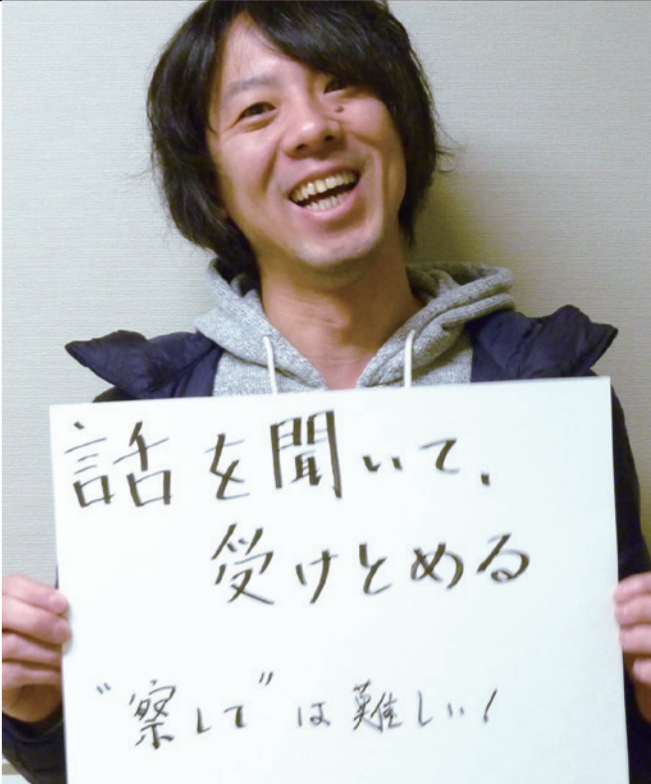 話を聞いて、
受けとめる
"察して"は難しい!